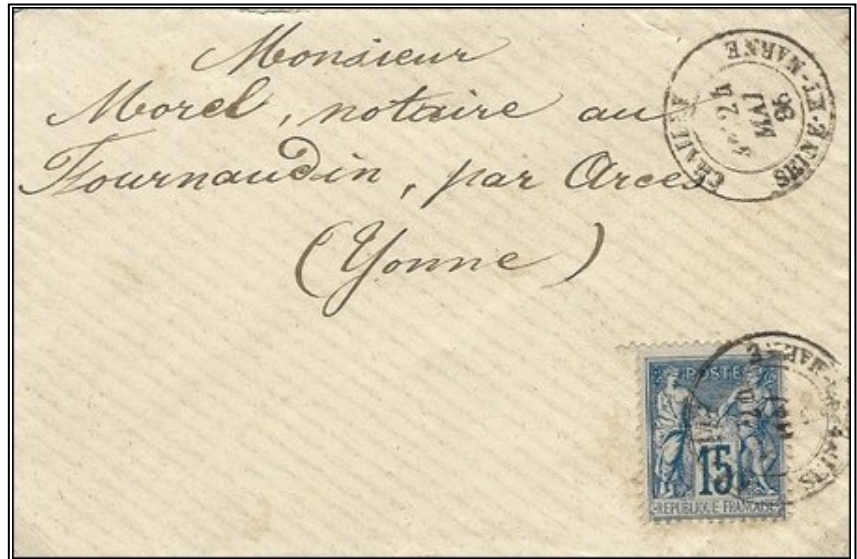 Monsieur
Morel, notaire au
Fournaudin, par Arces
(Yonne)
SEINE-ET-MARNE
24
MAI
86
POSTE
15
REPUBLIQUE FRANCAISE